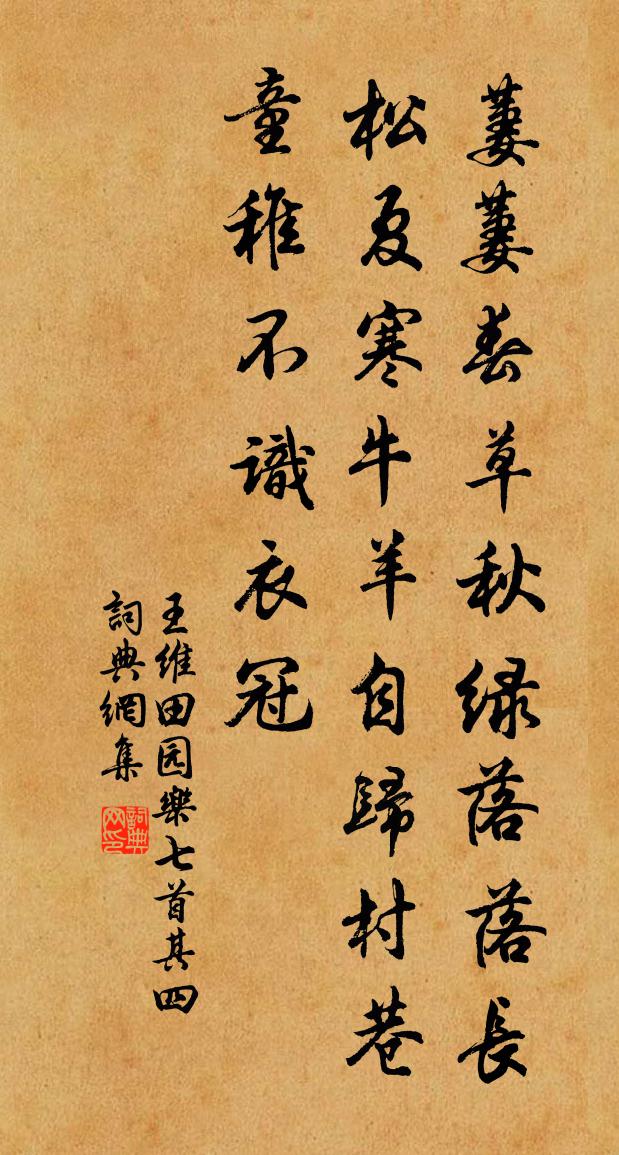 萋萋春草秋绿落落長
松夏寒牛羊自歸村巷
童稚不識衣冠
王維田园樂七首其四
詞典網集
詞典网印